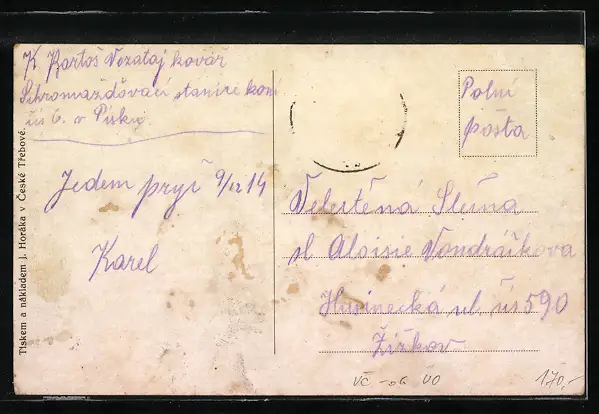 K Bartoš Vozataj kovář
Schromažďovací stanice koní
čís 6. v Písku
Jedem pryč 9/12 14
Karel
Polní
pošta
Velectěná Slečna
sl Aloisie Vondráčkova
Husinecká ul čís 590
Žižkov
Tiskem a nákladem J. Horáka v České Třebové.
VČ -06 ÚO
170,-